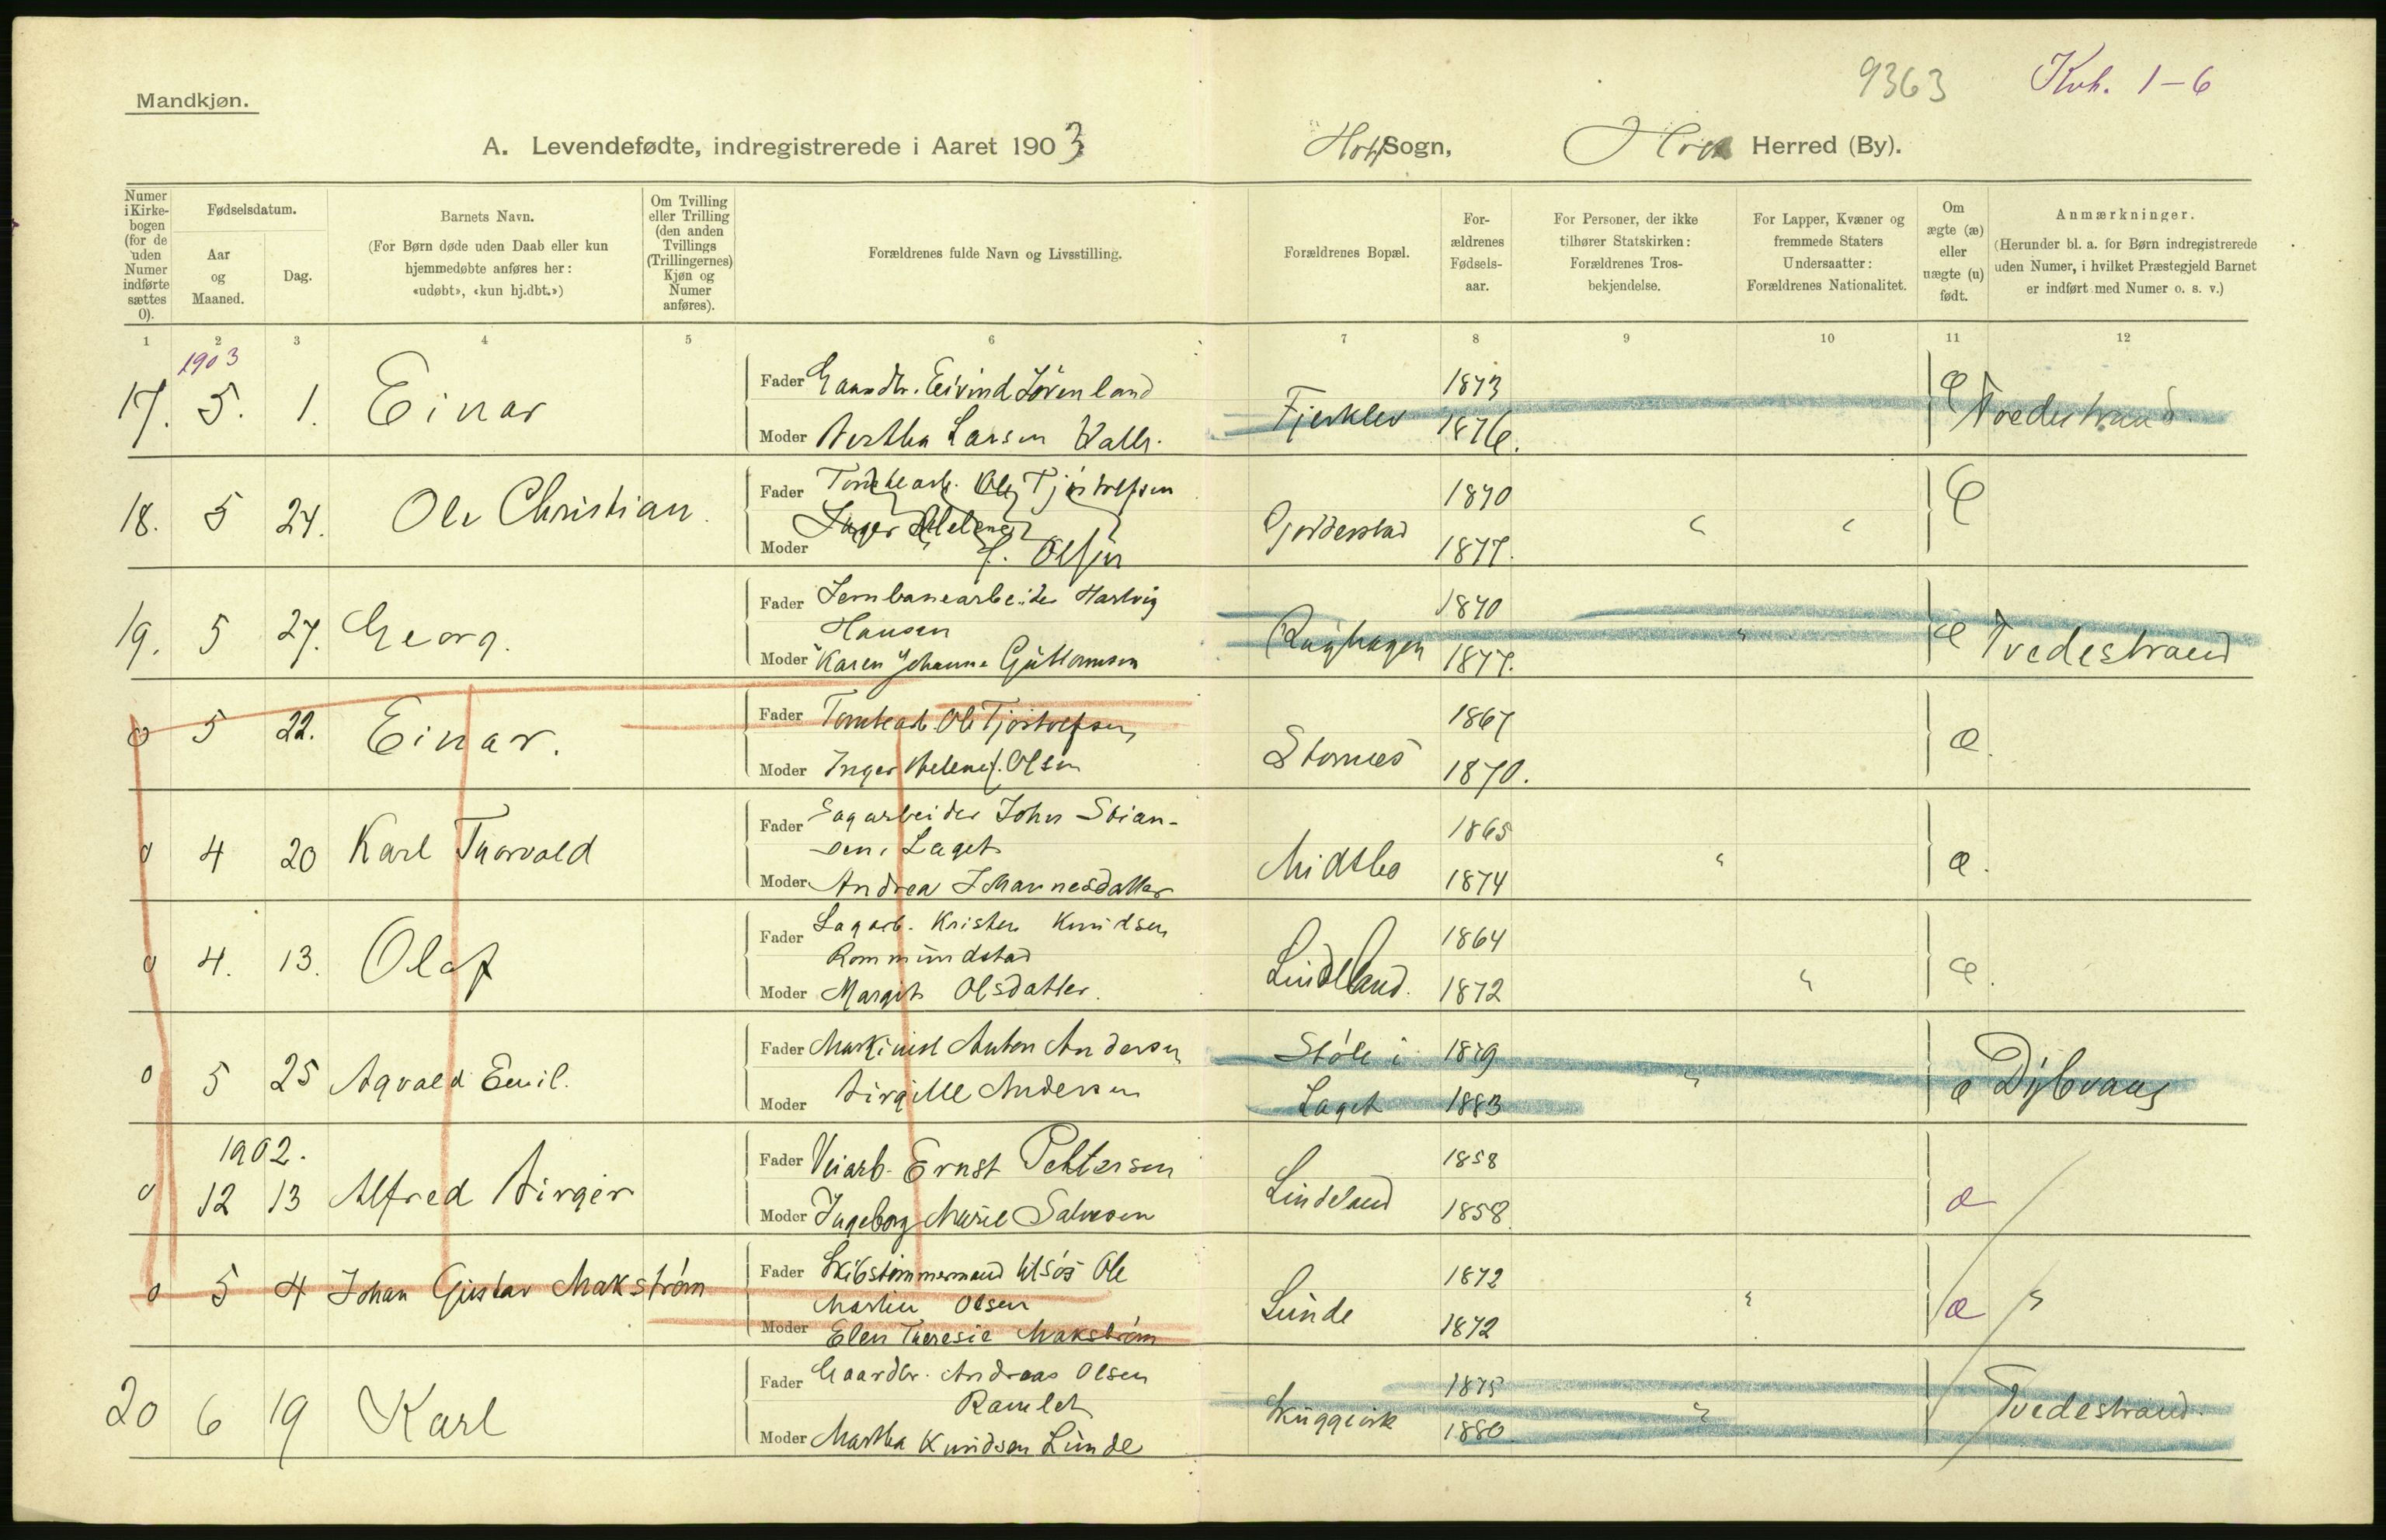 9363 Kvh. 1-6
Mandkjøn.
A. Levendefødte, indregistrerede i Aaret 1903
Holt Sogn, Herred (By).
Numer i Kirkebogen (for de uden Numer indførte sættes 0).
Fødselsdatum.
Aar og Maaned.
Dag.
Barnets Navn.
(For Børn døde uden Daab eller kun hjemmedøbte anføres her: «udøbt», «kun hj.dbt.»)
Om Tvilling eller Trilling (den anden Tvillings (Trillingernes) Kjøn og Numer anføres).
Forældrenes fulde Navn og Livsstilling.
Forældrenes Bopæl.
Forældrenes Fødselsaar.
For Personer, der ikke tilhører Statskirken: Forældrenes Trosbekjendelse.
For Lapper, Kvæner og fremmede Staters Undersaatter: Forældrenes Nationalitet.
Om ægte (æ) eller uægte (u) født.
Anmærkninger.
(Herunder bl. a. for Børn indregistrerede uden Numer, i hvilket Præstegjeld Barnet er indført med Numer o. s. v.)
1 2 3 4 5 6 7 8 9 10 11 12
1903
17. 5. 1. Einar
Fader Gaardbr. Eivind Lövenland
Moder Bertha Larsen
Fjerklev 1873 1876. æ Tvedestrand
18. 5 24. Ole Christian
Fader Ole Tjöstolfsen
Moder Inger Helene f. Olsen
Goderstad 1870 1877. " " æ
19. 5 27. Georg.
Fader Jernbanearbeider Hartvig
Hansen
Moder Karen Johanne Guttormsen
1870 1877. " æ Tvedestrand
0 5 22. Einar.
Fader Tomtearb. Ole Tjöstolfsen
Moder Inger Helene f. Olsen
1867 1870. æ.
0 4 20 Karl Thorvald
Fader Sagarbeider John Stian-
sen, Laget
Moder Andrea Johannesdatter
Midtbo 1865 1874 " æ.
0 4. 13. Olaf
Fader Sagarb. Kristen Knudsen
Rommundstad
Moder Margit Olsdatter.
Lindland. 1864 1872 " æ.
0 5 25 Agvald Emil.
Fader Maskinist Anton Andersen
Moder Birgitte Andersen
Støle i
Laget
1879 1883 " æ Dybvaag
1902.
0 12 13 Alfred Birger
Fader Veiarb. Ernst Pettersen
Moder Ingeborg Marie Salvesen
Lindland 1858 1858 æ
0 5 4 Johan Gustav Makström
Fader Skibstømmermand Ole
Martin Olsen
Moder Elen Theresie Makström
Lunde 1872 1872 " æ "
20 6 19 Karl
Fader Gaardbr. Andreas Olsen
Ramlet
Moder Martha Knudsen Lunde
1875 1880 " Tvedestrand.